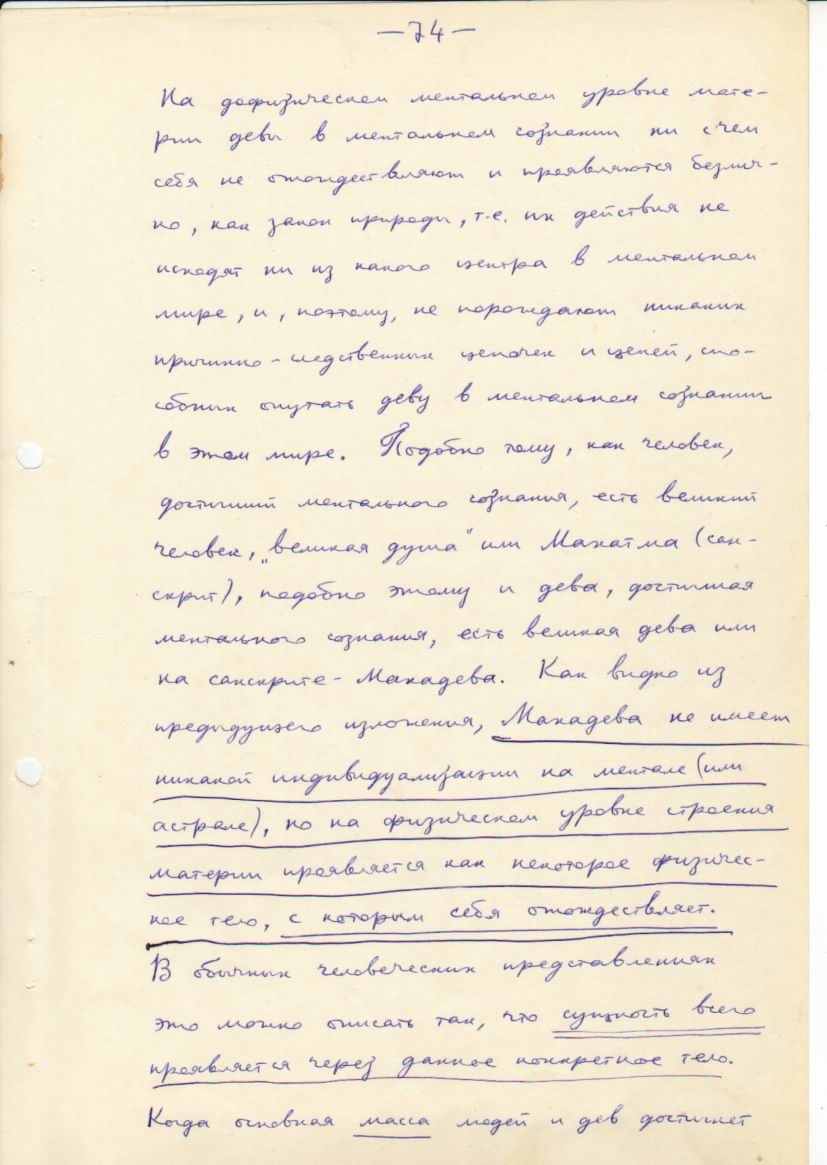 —74—
На дофизическом ментальном уровне мате-
рии девы в ментальном сознании ни с чем
себя не отождествляют и проявляются безлич-
но, как закон природы, т.е. их действия не
исходят ни из какого центра в ментальном
мире, и, поэтому, не порождают никаких
причинно-следственных цепочек и цепей, спо-
собных опутать деву в ментальном сознании
в этом мире. Подобно тому, как человек,
достигший ментального сознания, есть великий
человек, „великая душа" или Махатма (сан-
скрит), подобно этому и дева, достигшая
ментального сознания, есть великая дева или
на санскрите - Махадева. Как видно из
предыдущего изложения, Махадева не имеет
никакой индивидуализации на ментале (или
астрале), но на физическом уровне строения
материи проявляется как некоторое физичес-
кое тело, с которым себя отождествляет.
В обычных человеческих представлениях
это можно описать так, что сущность всего
проявляется через данное конкретное тело.
Когда основная масса людей и дев достигнет